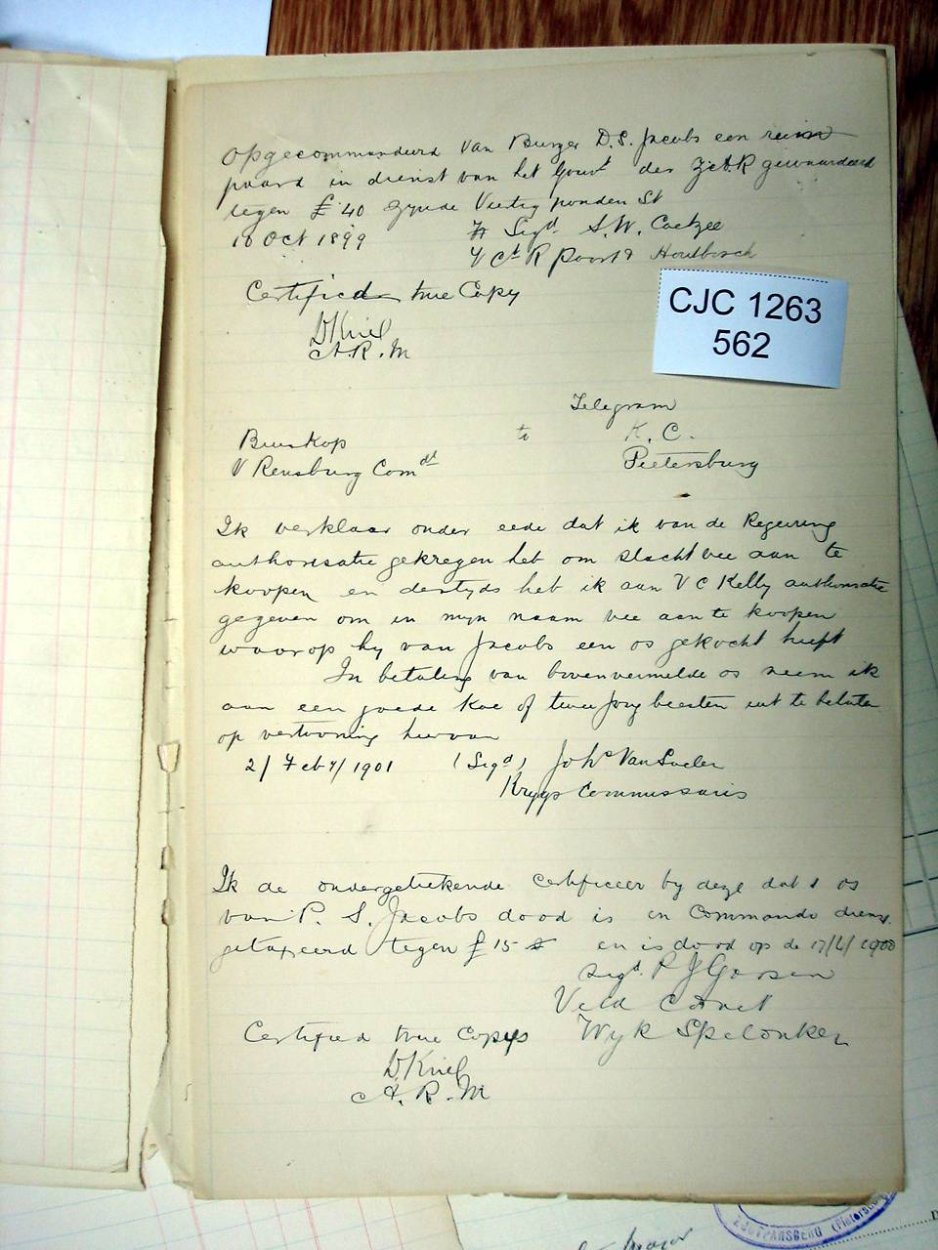 Opgecommandeerd van Burger D.S. Jacobs een ruin
paard in dienst van het Gouvt der Z.A.R gewaardeerd
tegen £40 zynde Veertig ponden St
18 Oct 1899 Sigd. S.W. Coetzee
V Ct R Poort & Houtbosch
CJC 1263
562
Certified true Copy
D Kriel
A.R.M
Telegram
Buiskop to K.C.
V Rensburg Comdt Pietersburg
Ik verklaar onder eede dat ik van de Regeering
authorisatie gekregen heb om slachtvee aan te
koopen en destyds heb ik aan V C Kelly authorisatie
gegeven om in myn naam vee aan te koopen
waarop hy van Jacobs een os gekocht heeft
In betaling van bovenvermelde os neem ik
aan een goede koe of twee jong beesten uit te betalen
op vertooning hiervan
2/Feby/1901 (Sigd) Johs Van
Krygs Commissaris
Ik de ondergetekende certificeer by deze dat 1 os
van P. S. Jacobs dood is in Commando dienst
getaxeerd tegen £15 en is dood op de 17/4/1900
Sigd. P J
Veld Cornet
Certified true Copy Wyk Spelonken
D Kriel
A.R.M